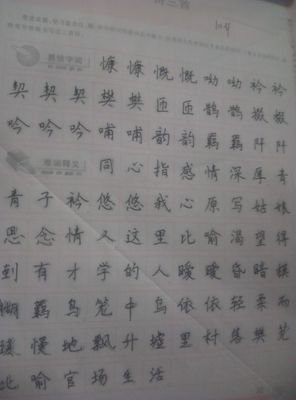 慷 慷 慨 慨 呦 呦 衿 衿
契 契 契 樊 樊 匝 匝 鹊 鹊 掇 掇
吟 吟 吟 哺 哺 韵 韵 羁 羁 阡 阡
难词释义 同 心 指 感 情 深 厚 青
青 子 衿 悠 悠 我 心 原 写 姑 娘
思 念 情 人 这 里 比 喻 渴 望 得
到 有 才 学 的 人 暧 暧 昏 暗 模
糊 羁 鸟 笼 中 鸟 依 依 轻 柔 而
缓 慢 地 飘 升 墟 里 村 落 樊 笼
比 喻 官 场 生 活